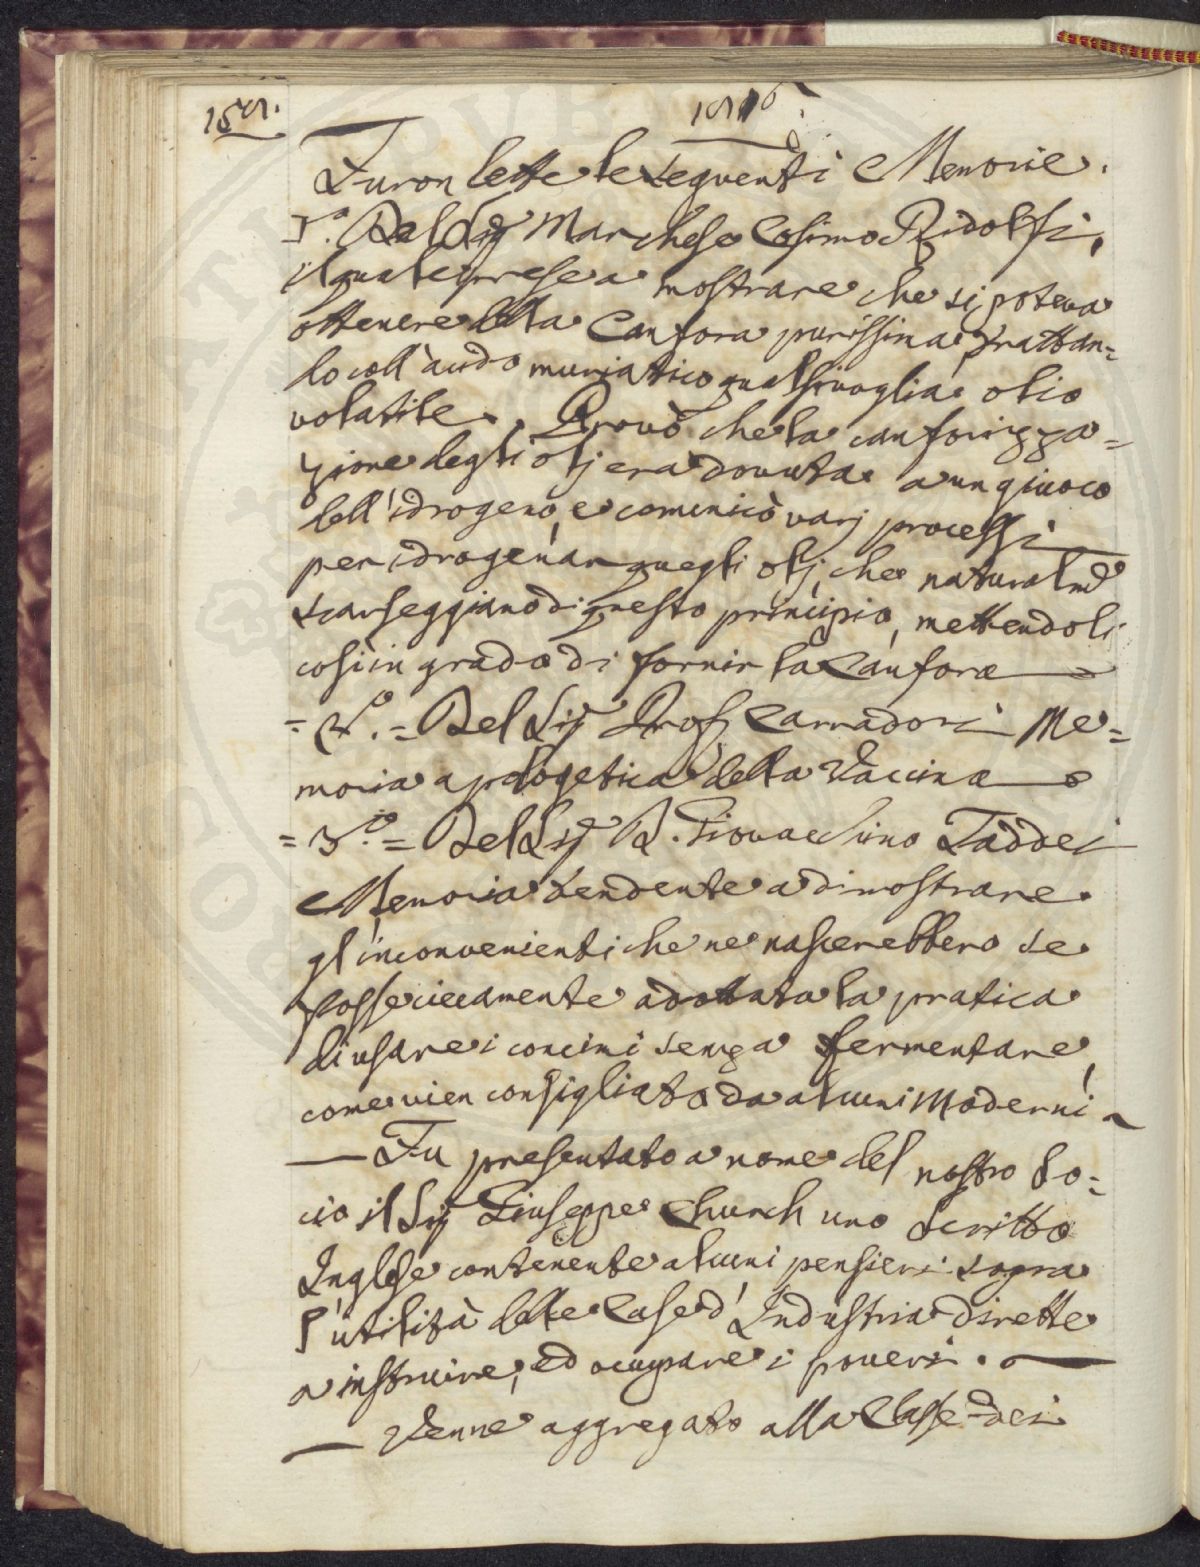 1816.
Furon lette le seguenti Memorie.
1.ª Del Sig.r Marchese Cosimo Ridolfi,
il quale prese a mostrare che si poteva
ottenere della Canfora purissima, trattan=
do coll'acido muriatico qualsivoglia olio
volatile. Provò che la canforizza=
zione degli olj era dovuta a un giuoco
dell'idrogeno, e comunicò varj processi
per idrogenar quegli olj, che naturalm.e
scarseggiano di questo principio, mettendoli
così in grado di fornir la Canfora
= 2.ª = Del Sig.r Prof. Carradori Me=
moria apologetica della Vaccina
= 3.ª = Del Sig.r D. Giovacchino Taddei
Memoria tendente a dimostrare
gl'inconvenienti che ne nascerebbero se
fosse ciecamente adottata la pratica
di usare i concimi senza fermentare,
come vien consigliato da alcuni Moderni
— Fu presentato a nome del nostro So=
cio il Sig.r Giuseppe Church uno Scritto
Inglese contenente alcuni pensieri sopra
l'utilità delle Case d'Industria dirette
a instruire, ed occupare i poveri.
— Venne aggregato alla Classe dei